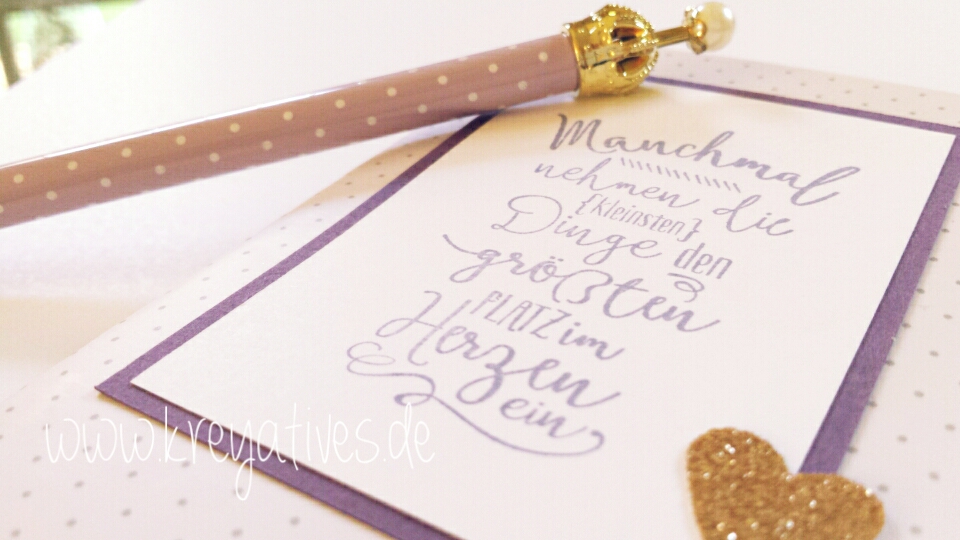 Manchmal
nehmen die
{kleinsten}
Dinge den
größten
PLATZ im
Herzen
ein
www.kreyatives.de